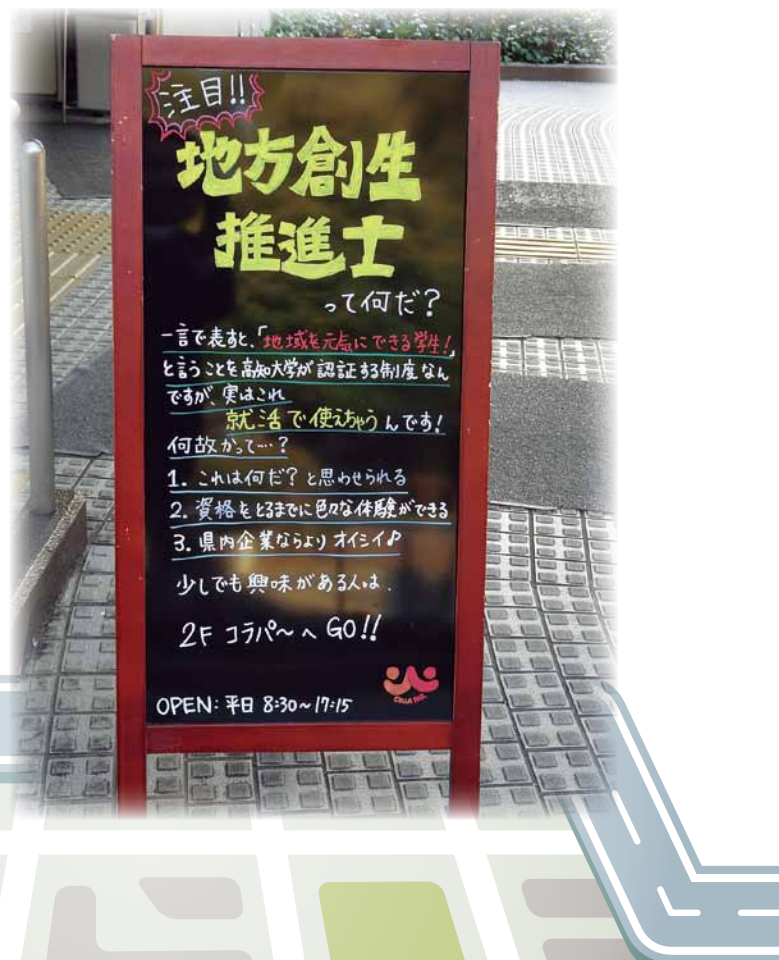 注目!!
地方創生
推進士
って何だ?
一言で表すと、「地域を元気にできる学生!」
と言うことを高知大学が認証する制度なん
ですが、実はこれ
就活で使えちゃうんです!
何故かって…?
1. これは何だ?と思わせられる
2. 資格をとるまでに色々な体験ができる
3. 県内企業ならよりオイシイ♪
少しでも興味がある人は.
2F コラパ〜へ GO!!
OPEN: 平日 8:30〜17:15